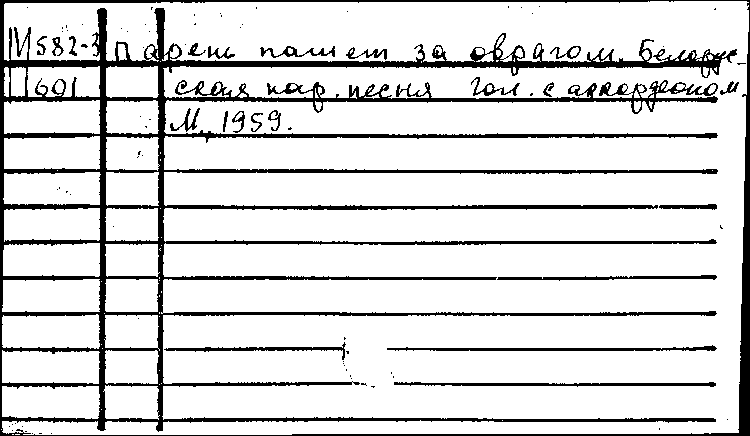 М582-3 Парень пашет за оврагом. Белорус-
П601 ская нар. песня Гол. с аккордеоном.
М., 1959.